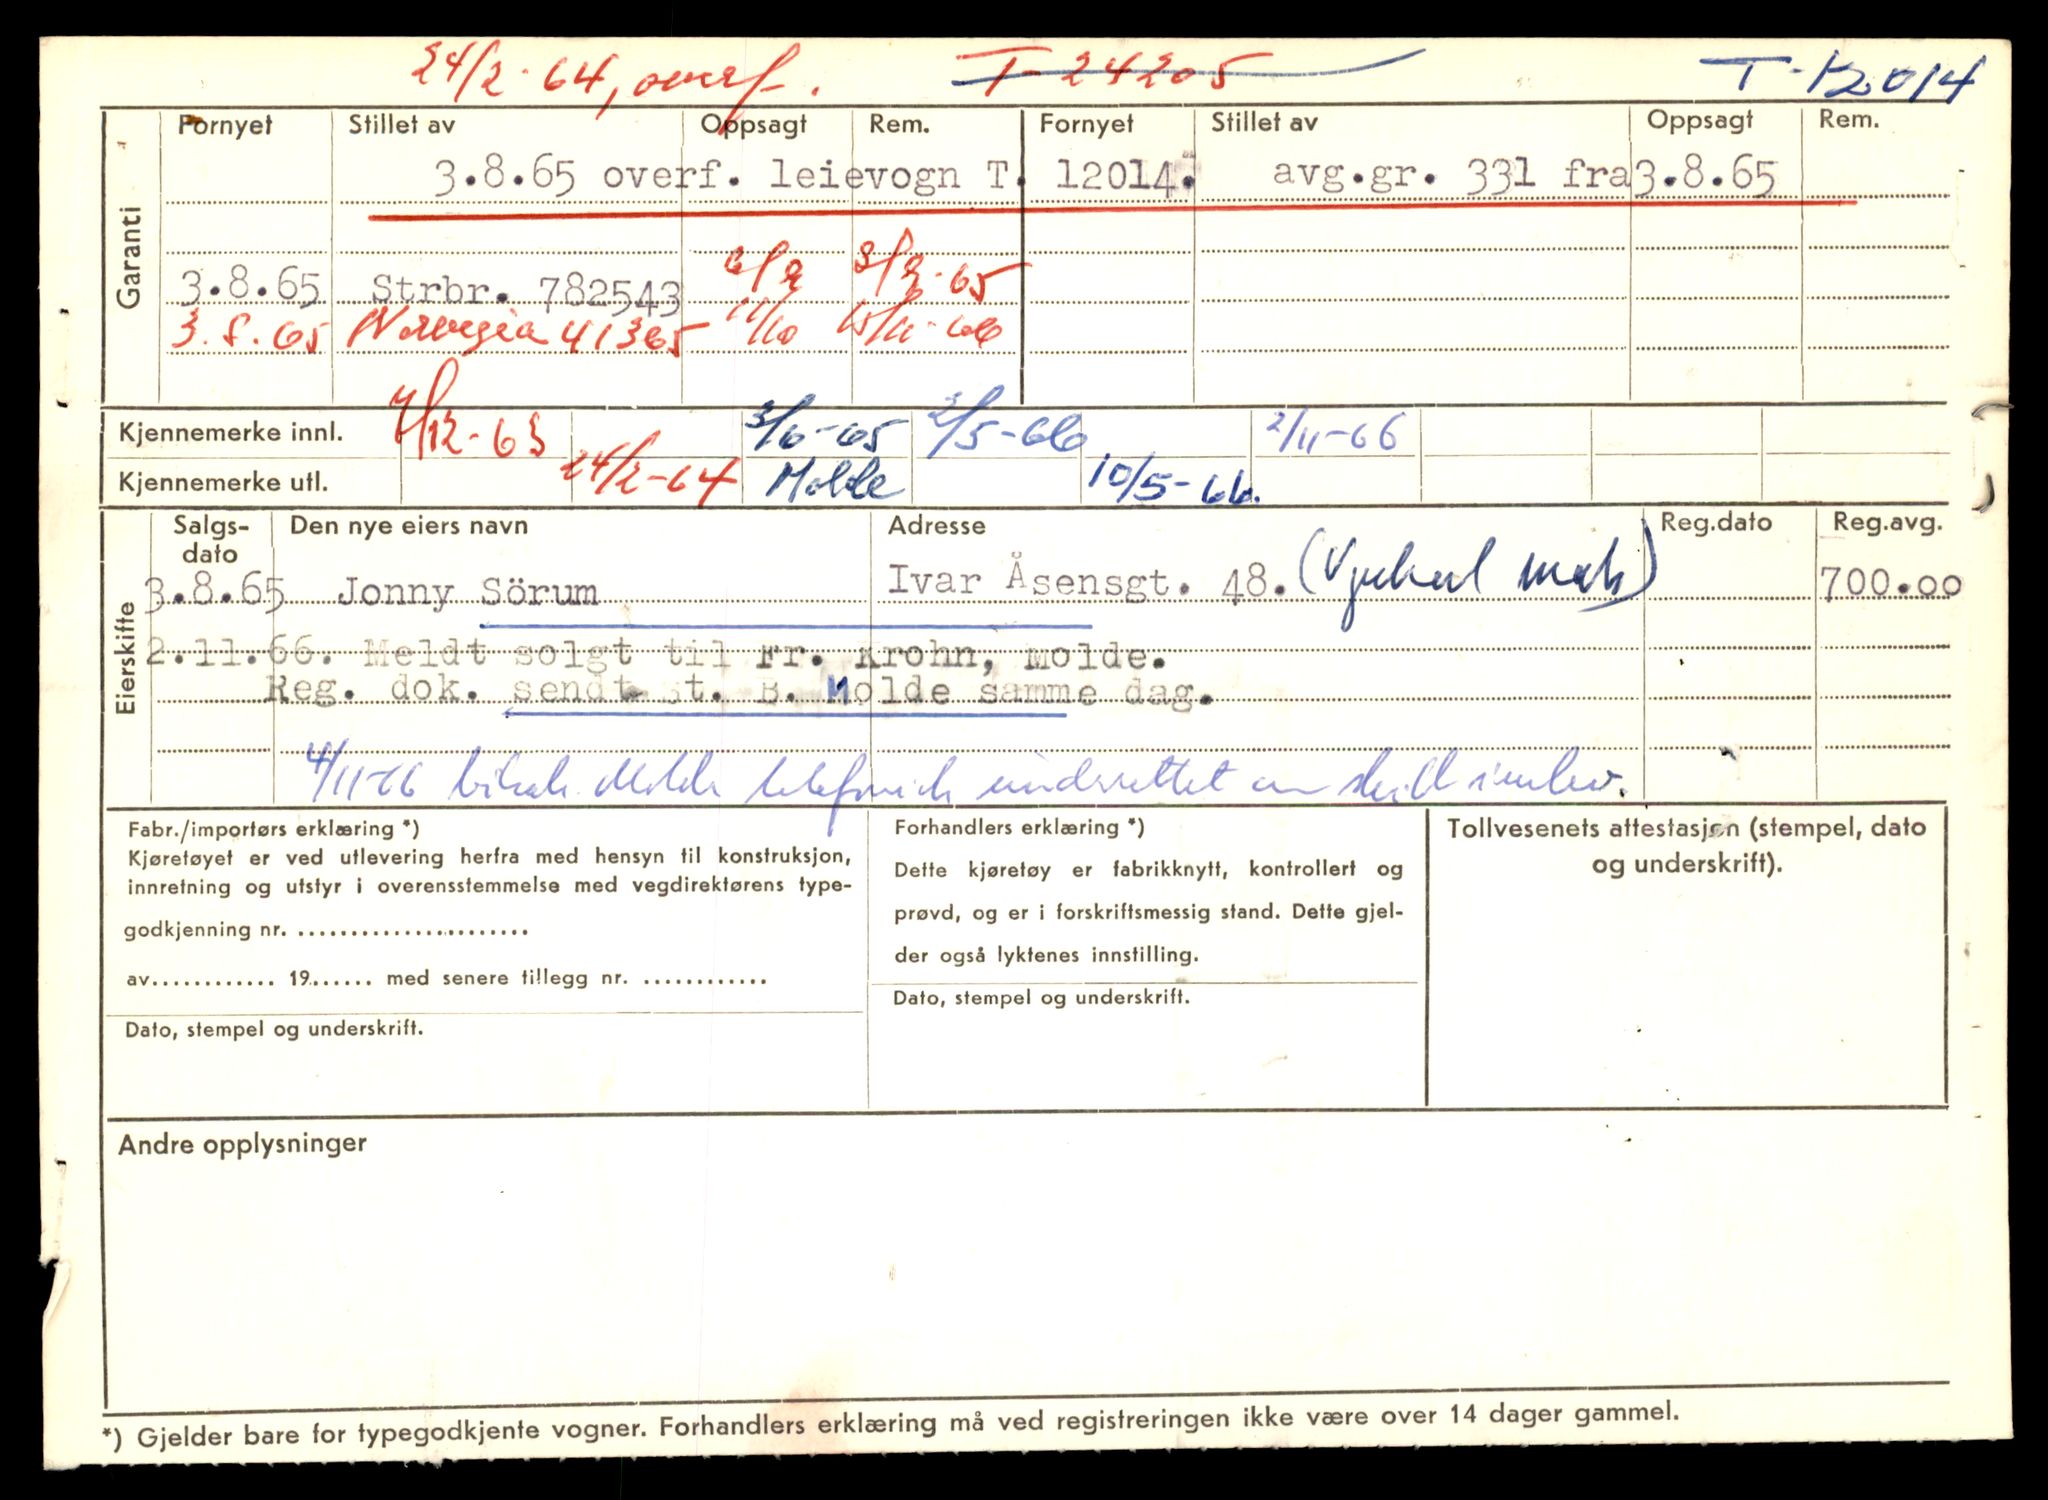 24/2-64, overf. T-24205 T-12014
Garanti
Fornyet Stillet av Oppsagt Rem. Fornyet Stillet av Oppsagt Rem.
3.8.65 overf. leievogn T. 12014. avg.gr. 331 fra 3.8.65
3.8.65 Strbr. 782543
3.8.65 Norvegia 41365 11/10 15/11-66
Kjennemerke innl. 7/12-63 3/6-65 2/5-66 2/11-66
Kjennemerke utl. 24/2-64 Molde 10/5-66.
Eierskifte
Salgs-dato Den nye eiers navn Adresse Reg.dato Reg.avg.
3.8.65 Jonny Sörum Ivar Åsensgt. 48. 700.00
2.11.66. Meldt solgt til Fr. Krohn, Molde.
Reg. dok. sendt st. B. Molde samme dag.
4/11-66 Molde telefonisk underrettet om
Fabr./importørs erklæring *)
Kjøretøyet er ved utlevering herfra med hensyn til konstruksjon,
innretning og utstyr i overensstemmelse med vegdirektørens type-
godkjenning nr. ......................
av............ 19...... med senere tillegg nr. ............
Dato, stempel og underskrift.
Forhandlers erklæring *)
Dette kjøretøy er fabrikknytt, kontrollert og
prøvd, og er i forskriftsmessig stand. Dette gjel-
der også lyktenes innstilling.
Dato, stempel og underskrift.
Tollvesenets attestasjon (stempel, dato
og underskrift).
Andre opplysninger
*) Gjelder bare for typegodkjente vogner. Forhandlers erklæring må ved registreringen ikke være over 14 dager gammel.